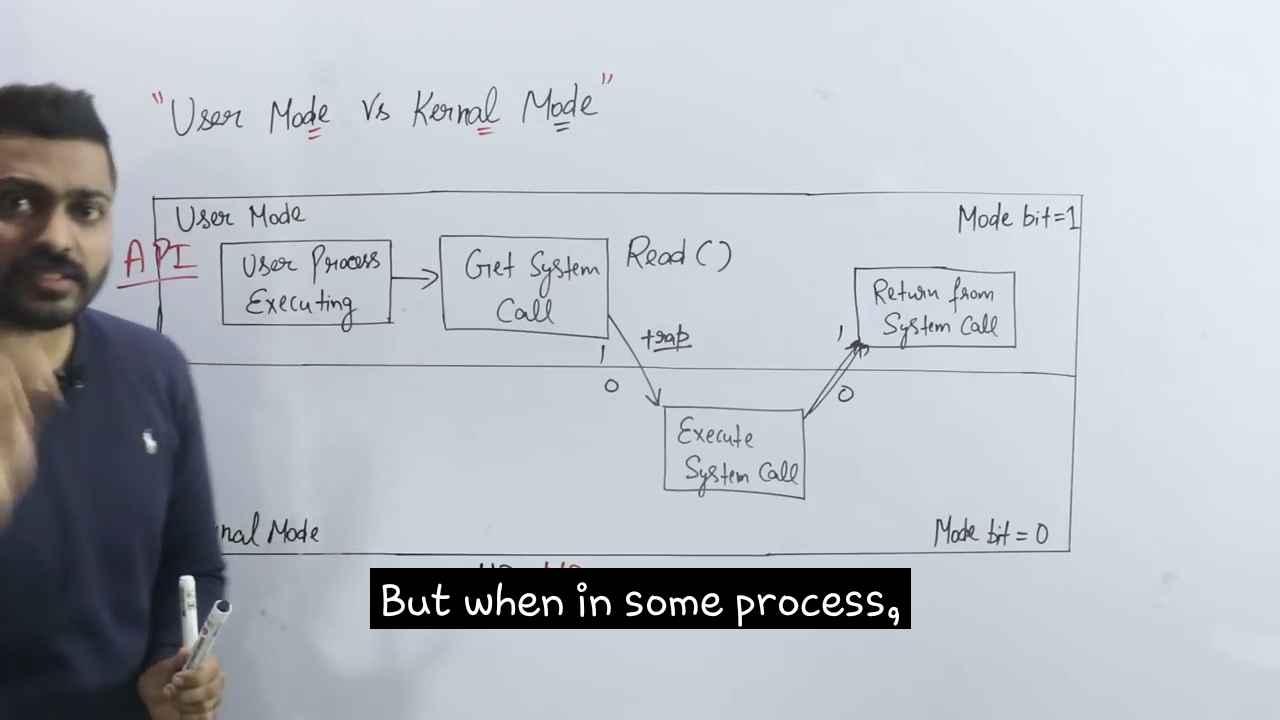 "User Mode Vs Kernal Mode"
User Mode
Mode bit=1
API
User Process
Executing
Get System
Call
Read()
Return from
System Call
trap
1
0
1
0
Execute
System Call
nal Mode
Mode bit = 0
But when in some process,